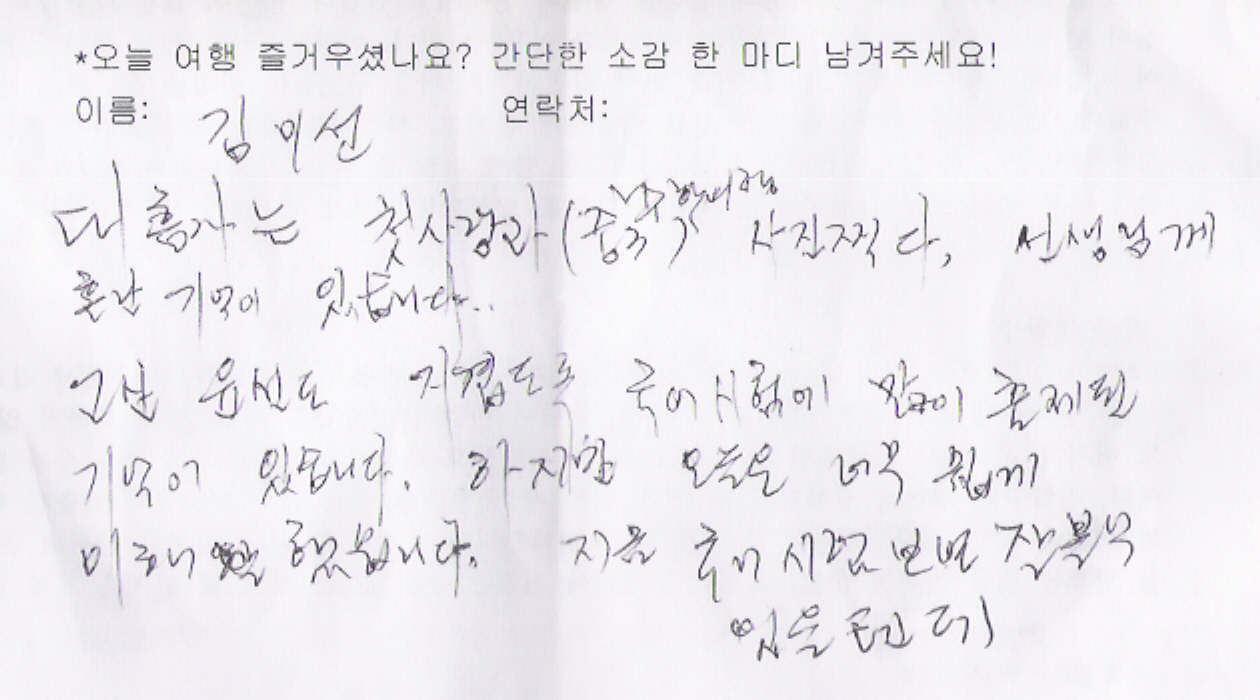 *오늘 여행 즐거우셨나요? 간단한 소감 한 마디 남겨주세요!
이름: 김미선 연락처:
대흥사는 첫사랑과 사진찍다, 선생님께
혼난 기억이 있습니다..
고산 윤선도 지겹도록 국어시험에 많이 출제된
기억이 있습니다. 하지만 오늘은 너무 쉽게
이해 했습니다. 지금 국어 시험 보면 잘볼수
있을텐데